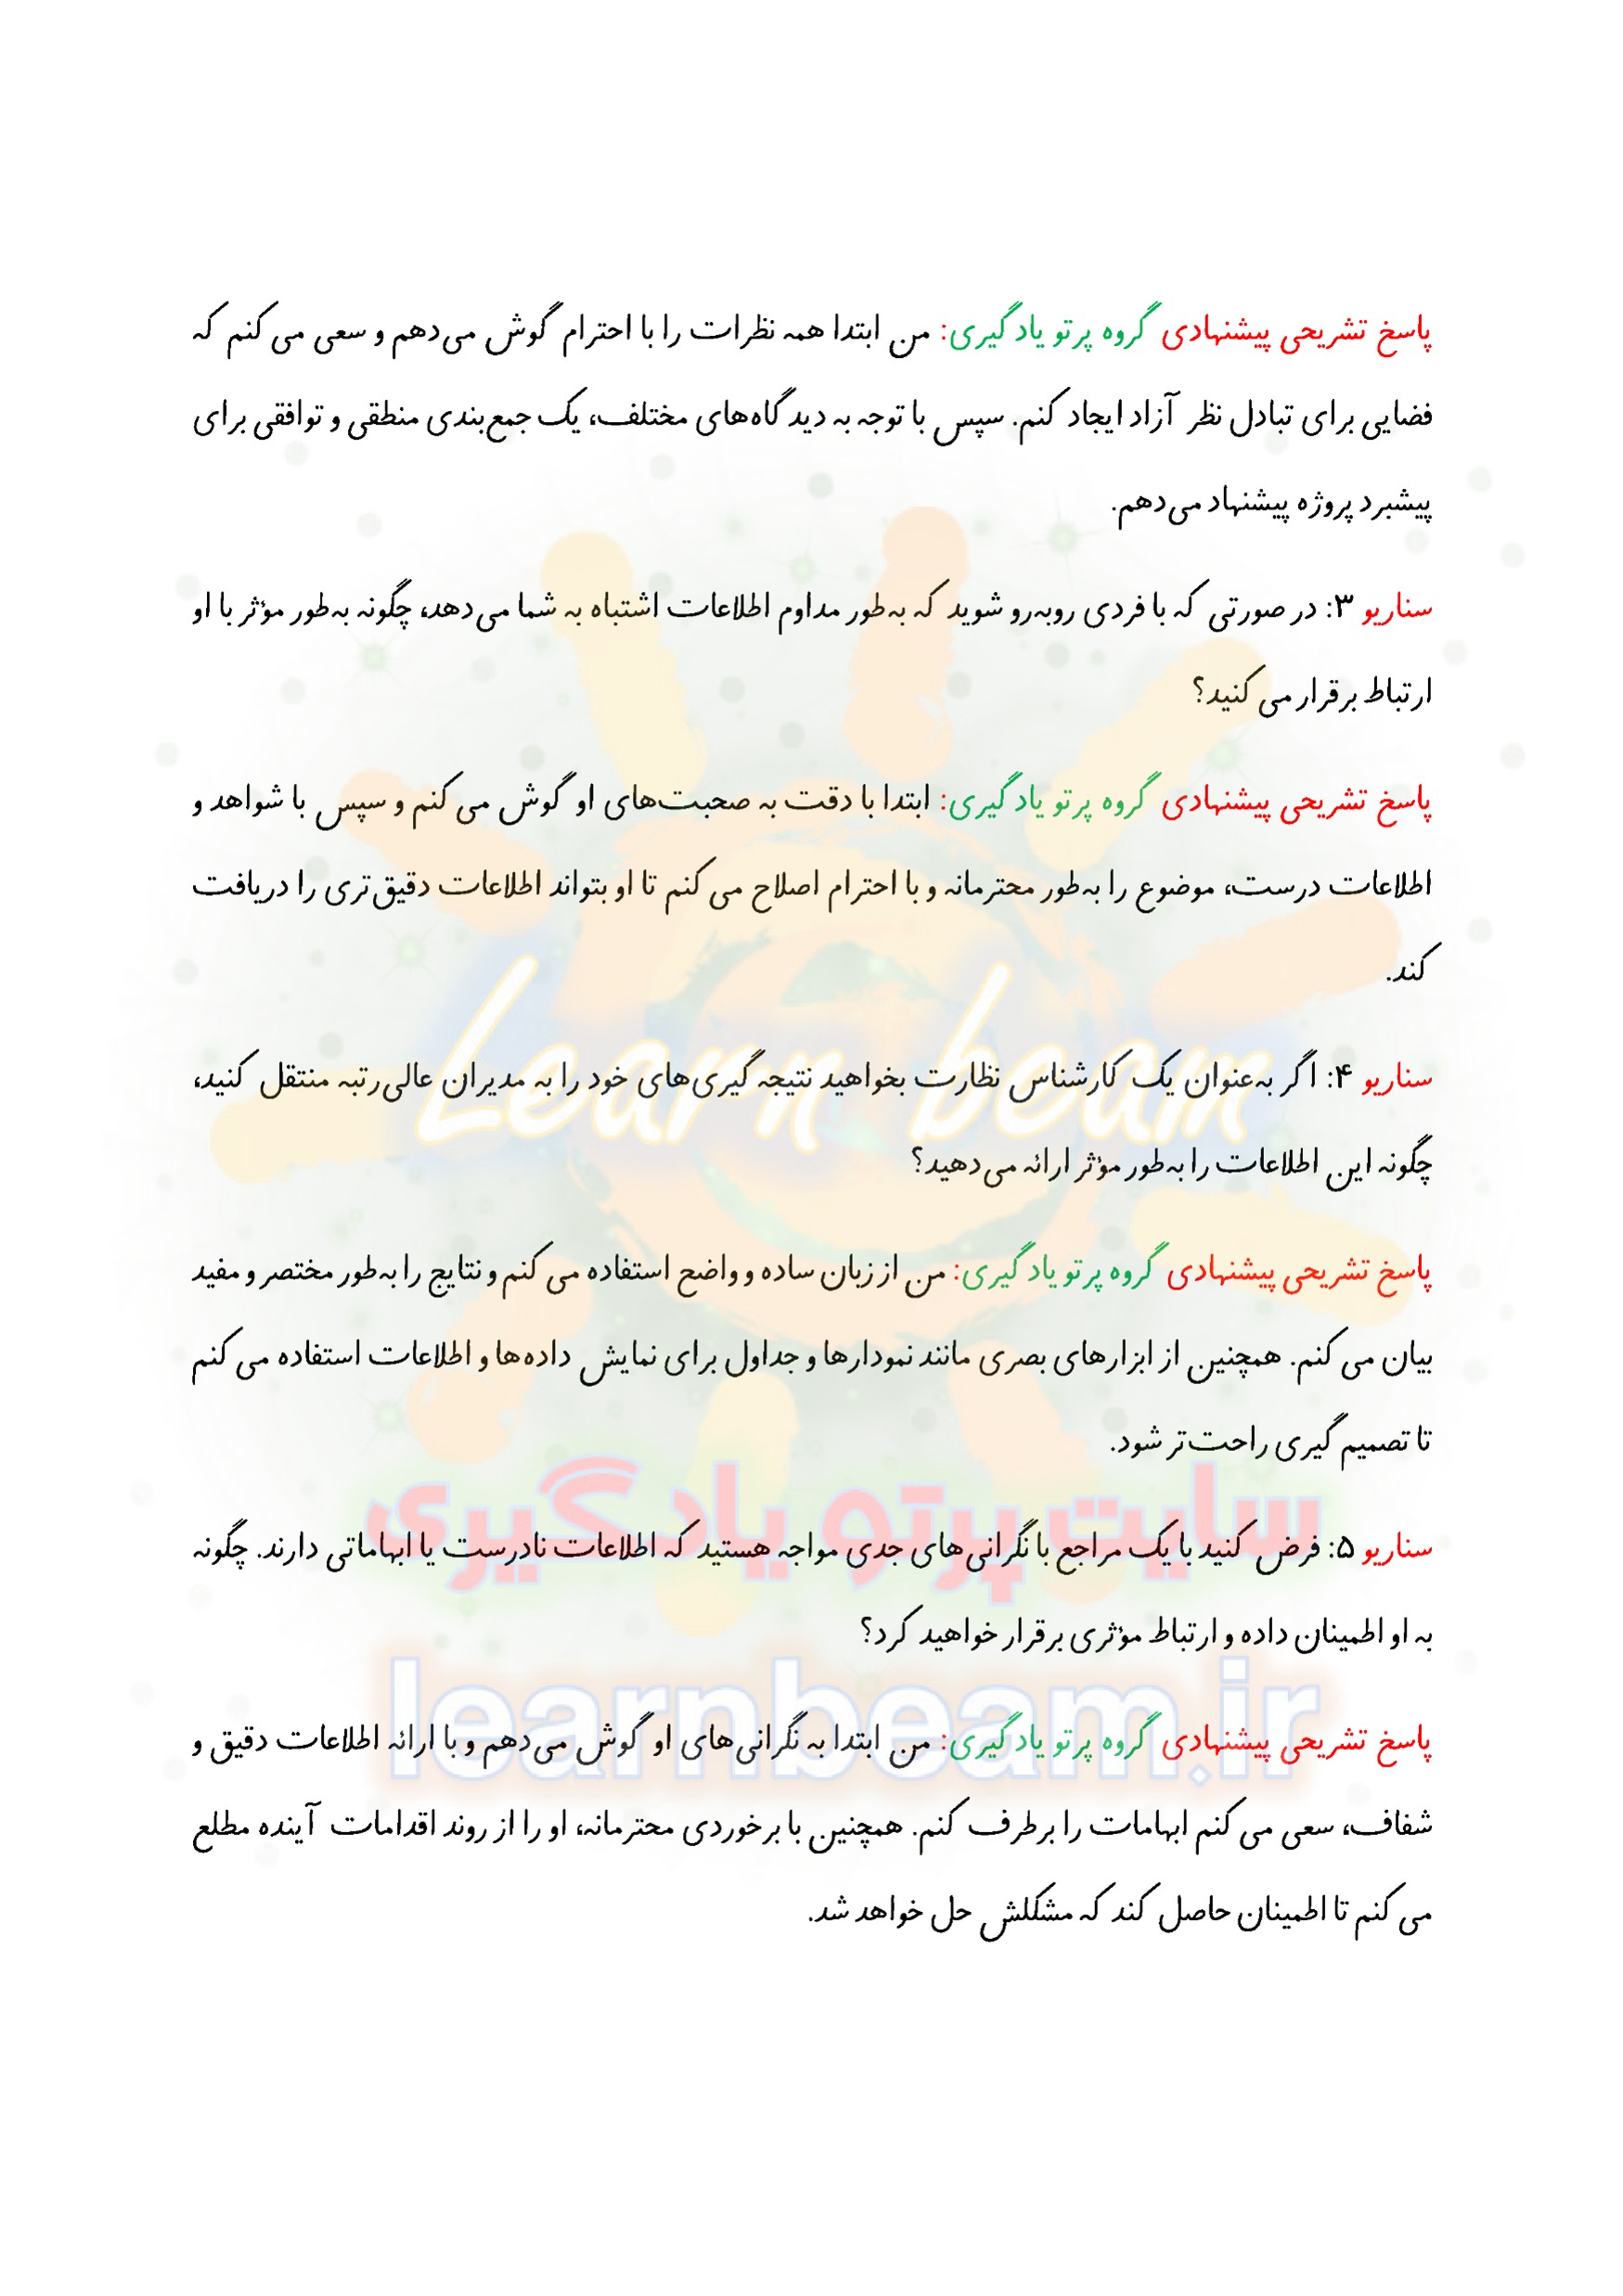 پاسخ تشریحی پیشنهادی گروه پرتو یادگیری: من ابتدا همه نظرات را با احترام گوش می‌دهم و سعی می‌کنم که
فضایی برای تبادل نظر آزاد ایجاد کنم. سپس با توجه به دیدگاه‌های مختلف، یک جمع‌بندی منطقی و توافقی برای
پیشبرد پروژه پیشنهاد می‌دهم.
سناریو ۳: در صورتی که با فردی روبه‌رو شوید که به‌طور مداوم اطلاعات اشتباه به شما می‌دهد، چگونه به‌طور مؤثر با او
ارتباط برقرار می‌کنید؟
پاسخ تشریحی پیشنهادی گروه پرتو یادگیری: ابتدا با دقت به صحبت‌های او گوش می‌کنم و سپس با شواهد و
اطلاعات درست، موضوع را به‌طور محترمانه و با احترام اصلاح می‌کنم تا او بتواند اطلاعات دقیق‌تری را دریافت
کند.
Learn beam
سناریو ۴: اگر به‌عنوان یک کارشناس نظارت بخواهید نتیجه‌گیری‌های خود را به مدیران عالی‌رتبه منتقل کنید،
چگونه این اطلاعات را به‌طور مؤثر ارائه می‌دهید؟
پاسخ تشریحی پیشنهادی گروه پرتو یادگیری: من از زبان ساده و واضح استفاده می‌کنم و نتایج را به‌طور مختصر و مفید
بیان می‌کنم. همچنین از ابزارهای بصری مانند نمودارها و جداول برای نمایش داده‌ها و اطلاعات استفاده می‌کنم
تا تصمیم‌گیری راحت‌تر شود.
سایت پرتو یادگیری
سناریو ۵: فرض کنید با یک مراجع با نگرانی‌های جدی مواجه هستید که اطلاعات نادرست یا ابهاماتی دارند. چگونه
به او اطمینان داده و ارتباط مؤثری برقرار خواهید کرد؟
learnbeam.ir
پاسخ تشریحی پیشنهادی گروه پرتو یادگیری: من ابتدا به نگرانی‌های او گوش می‌دهم و با ارائه اطلاعات دقیق و
شفاف، سعی می‌کنم ابهامات را برطرف کنم. همچنین با برخوردی محترمانه، او را از روند اقدامات آینده مطلع
می‌کنم تا اطمینان حاصل کند که مشکلش حل خواهد شد.